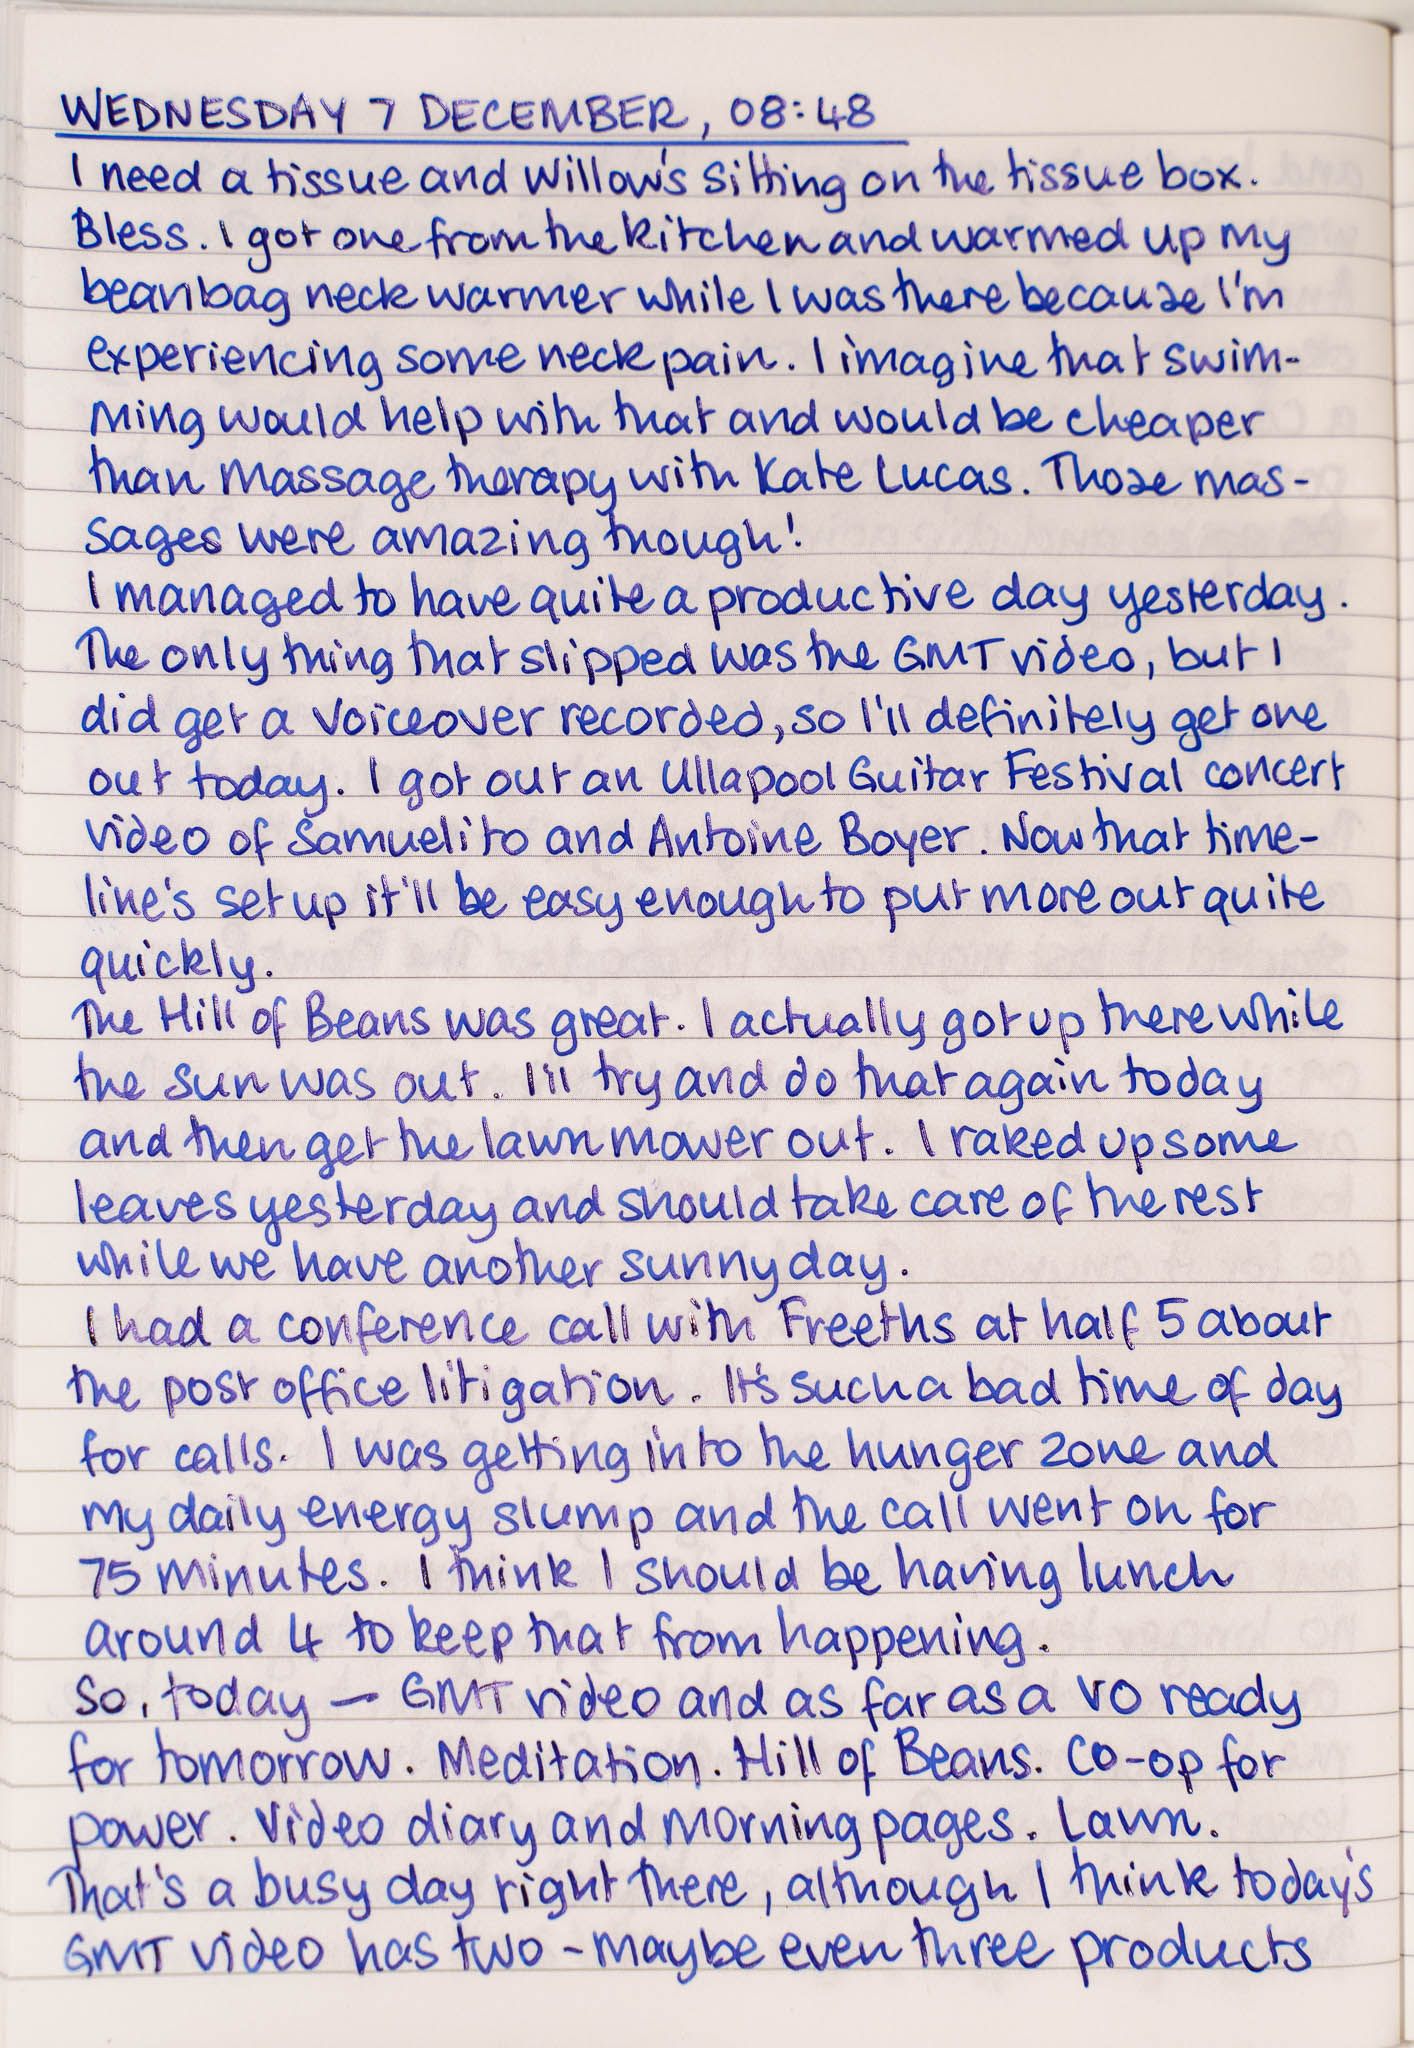 WEDNESDAY 7 DECEMBER, 08:48
I need a tissue and Willow's sitting on the tissue box.
Bless. I got one from the kitchen and warmed up my
beanbag neck warmer while I was there because I'm
experiencing some neck pain. I imagine that swim-
ming would help with that and would be cheaper
than massage therapy with Kate Lucas. Those mas-
sages were amazing though!
I managed to have quite a productive day yesterday.
The only thing that slipped was the GMT video, but I
did get a voiceover recorded, so I'll definitely get one
out today. I got out an Ullapool Guitar Festival concert
video of Samuelito and Antoine Boyer. Now that time-
line's set up it'll be easy enough to put more out quite
quickly.
The Hill of Beans was great. I actually got up there while
the sun was out. I'll try and do that again today
and then get the lawn mower out. I raked up some
leaves yesterday and should take care of the rest
while we have another sunny day.
I had a conference call with Freeths at half 5 about
the post office litigation. It's such a bad time of day
for calls. I was getting into the hunger zone and
my daily energy slump and the call went on for
75 minutes. I think I should be having lunch
around 4 to keep that from happening.
So, today — GMT video and as far as a VO ready
for tomorrow. Meditation. Hill of Beans. Co-op for
power. Video diary and morning pages. Lawn.
That's a busy day right there, although I think today's
GMT video has two - maybe even three products